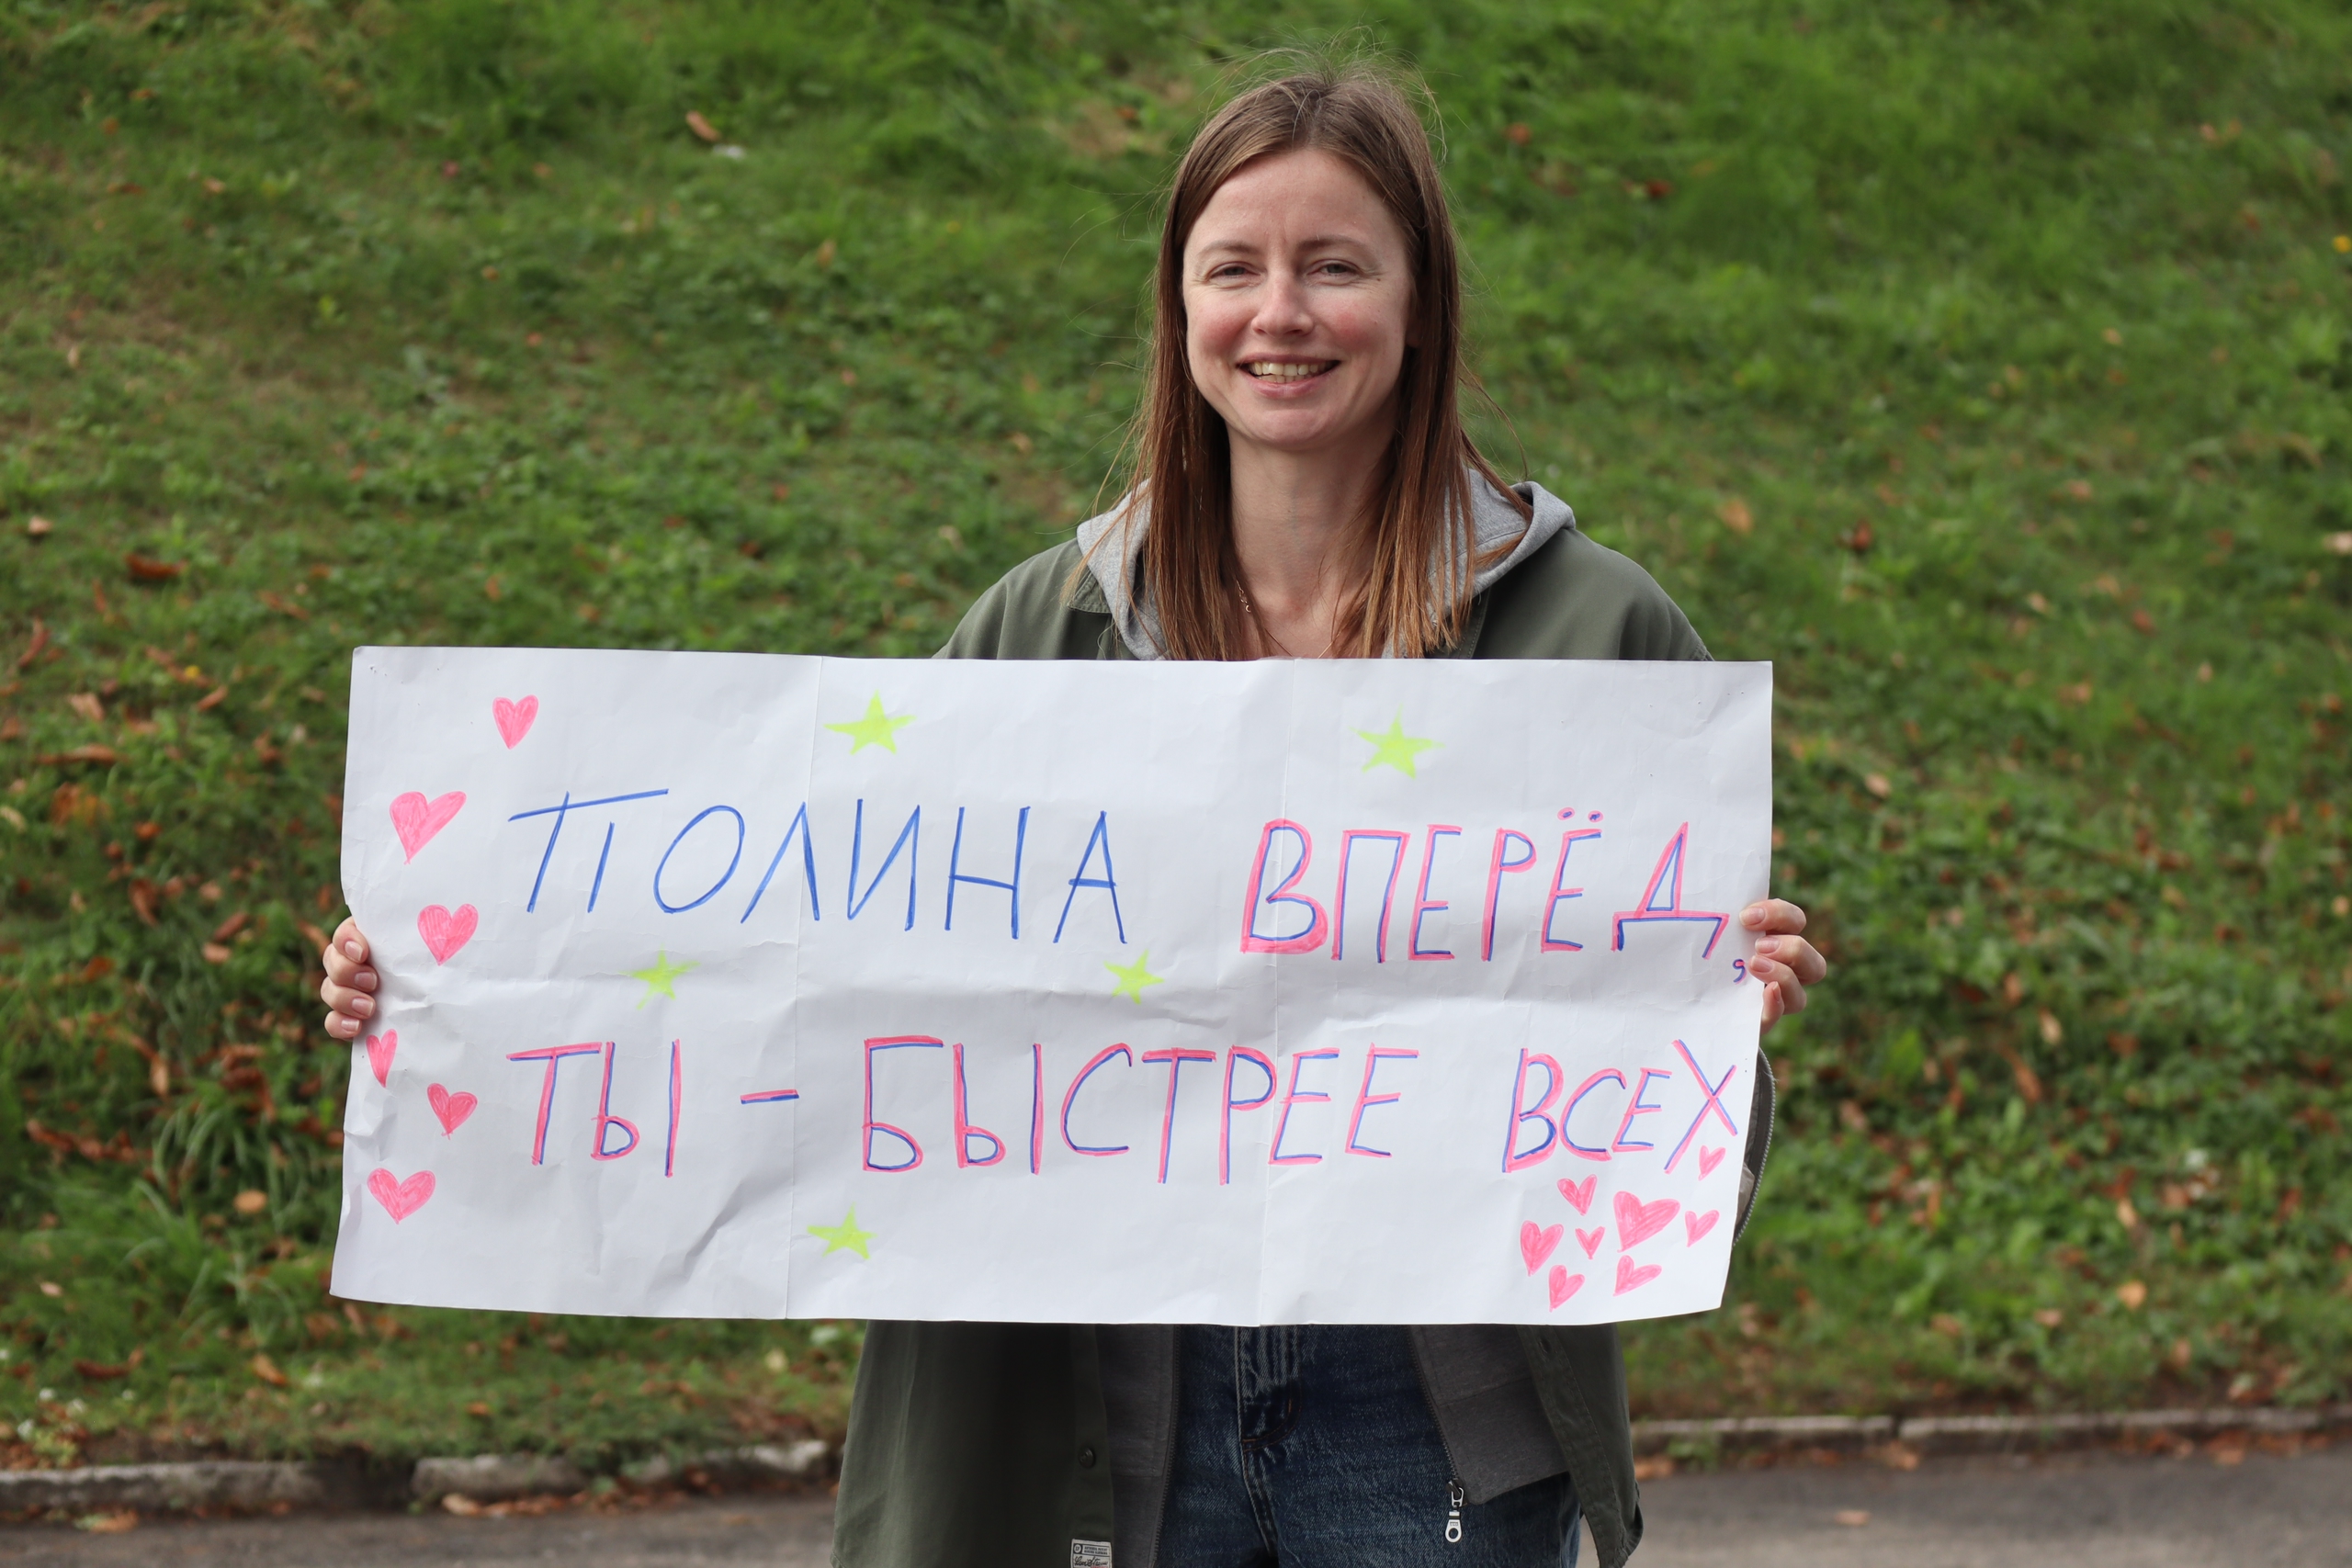 ПОЛИНА ВПЕРЁД,
ТЫ - БЫСТРЕЕ ВСЕХ